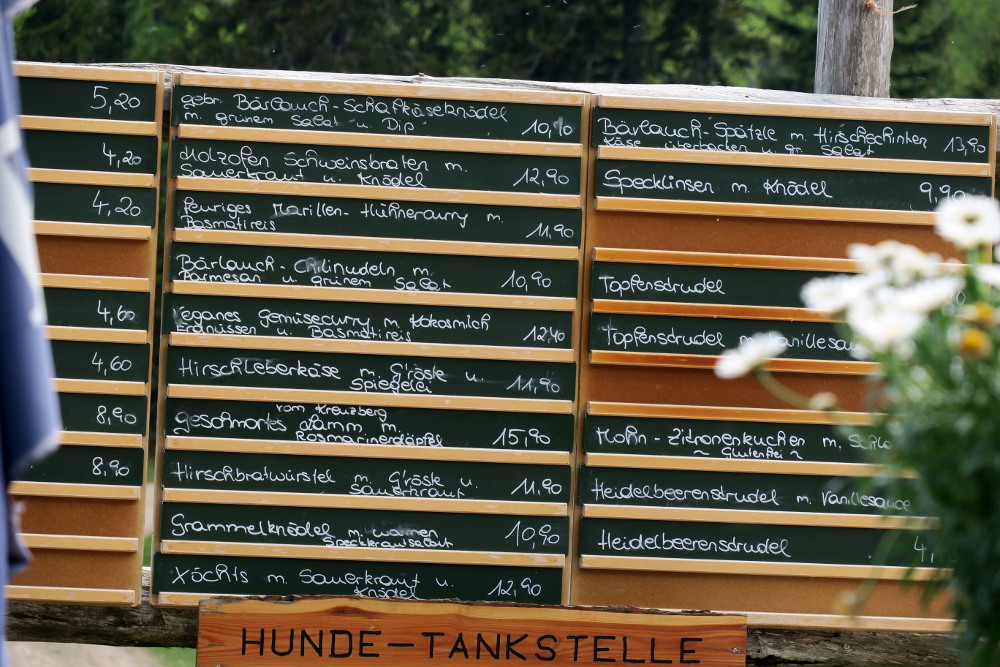 5,20
4,20
4,20
4,60
4,60
8,90
8,90
gebr. Bärlauch-Schafkäseknödel
m. grünem Salat u. Dip 10,90
Holzofen Schweinsbraten m.
Sauerkraut u. Knödel 12,90
feuriges Marillen-Hühnercurry m.
Basmatireis 11,90
Bärlauch-Chilinudeln m.
Parmesan u. grünem Salat 10,90
veganes Gemüsecurry m. Kokosmilch
Erdnüssen u. Basmatireis 12,40
Hirschleberkäse m. G'röste u.
Spiegelei 11,90
vom Kreuzberg
geschmortes Lamm m.
Rosmarinerdäpfel 15,90
Hirschbratwürstel m. G'röste u.
Sauerkraut 11,90
Grammelknödel m. warmen
Speckkrautsalat 10,90
X'öchts m. Sauerkraut u.
Knödel 12,90
Bärlauch-Spätzle m. Hirschschinken
Käse überbacken u. gr. Salat 13,90
Specklinsen m. Knödel 9,90
Topfenstrudel
Topfenstrudel m. Vanillesau
Mohn-Zitronenkuchen m. Schla
~ Glutenfrei ~
Heidelbeerenstrudel m. Vanillesauce
Heidelbeerenstrudel 4,
HUNDE-TANKSTELLE